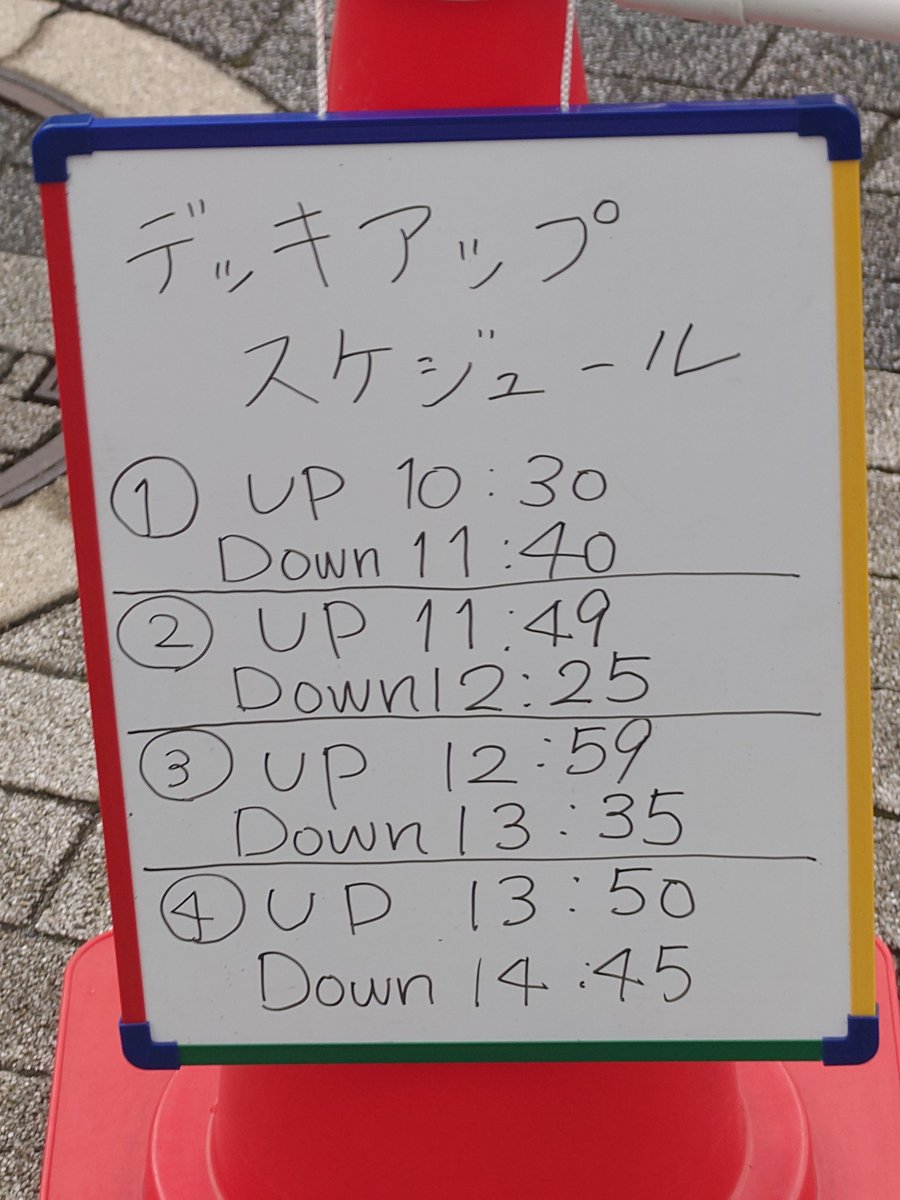 デッキアップ
スケジュール
① UP 10:30
Down 11:40
② UP 11:49
Down 12:25
③ UP 12:59
Down 13:35
④ UP 13:50
Down 14:45